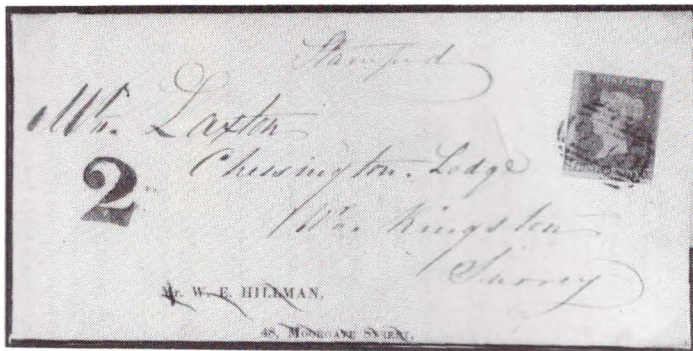 Stamford
Mr. Laxton
Chessington Lodge
2
Nr. Kingston
Surrey
Mr. W. E. HILLMAN,
48, MOORGATE STREET.